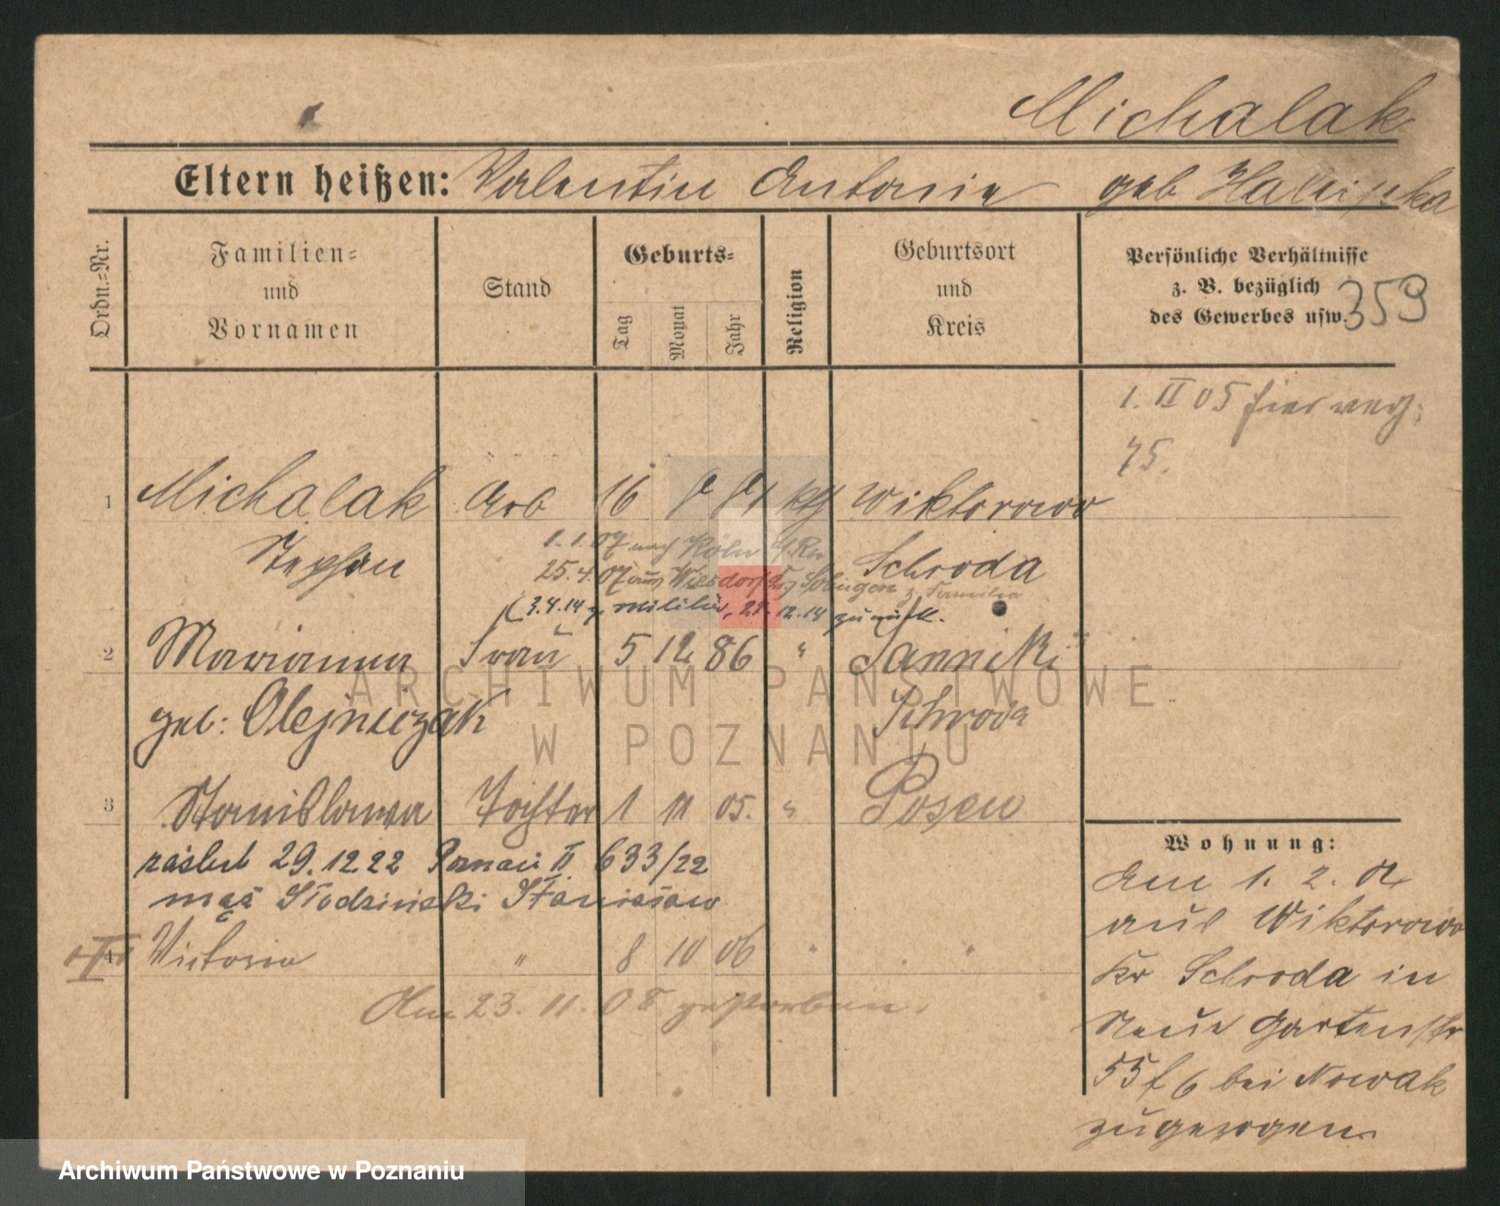 Michalak
Eltern heißen: Valentin Antonie geb
Ordn.-Nr.
Familien- und Vornamen
Stand
Geburts-
Tag
Monat
Jahr
Religion
Geburtsort und Kreis
Persönliche Verhältnisse
z. B. bezüglich
des Gewerbes usw.
359
1. II 05
75.
1 Michalak Arb 16 kth Wiktorowo
Stephan Schroda
1.1.07 nach Köln a/Rh
25.4.07 aus Wiesdorf Solingen z. Familie
3.4.14 z. militär, 12.14 zurück.
2 Marianna Frau 5 12 86 " Sanniki
geb: Olejniczak Schroda
3 Stanislawa Tochter 1 11 05. " Posen
zaślub 29.12.22 Poznań II 633/22
mąż Słodziński Stanisław
4 Victoria " 8 10 06 " "
Am 23. 11. 08 gestorben.
Wohnung:
Am 1. 2. 04
aus Wiktorowo
Kr Schroda in
Neue Gartenstr
55 f 6 bei Nowak
zugezogen
ARCHIWUM PAŃSTWOWE
W POZNANIU
Archiwum Państwowe w Poznaniu